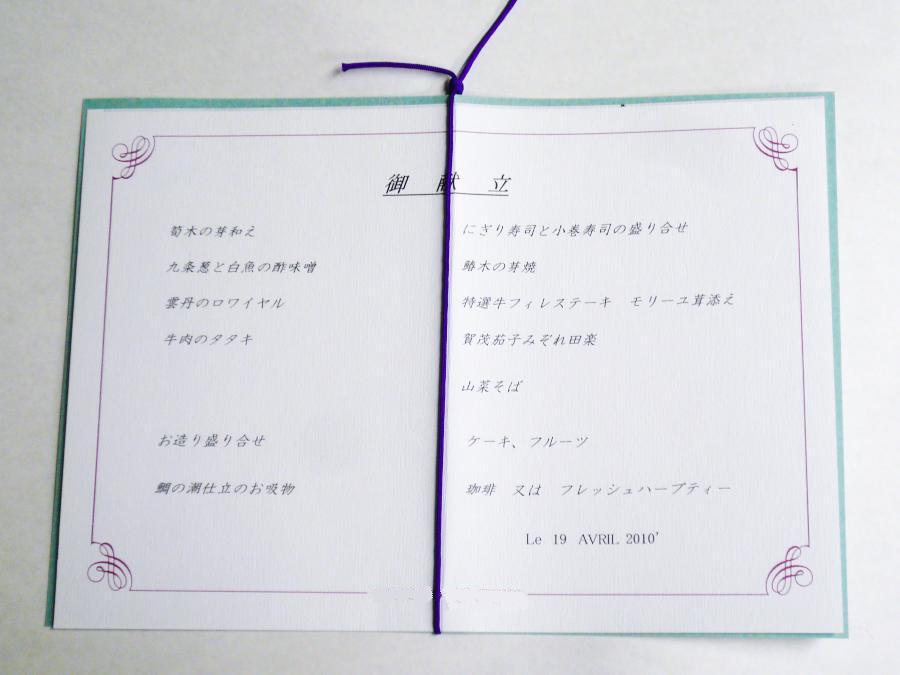 御献立
筍木の芽和え
九条葱と白魚の酢味噌
雲丹のロワイヤル
牛肉のタタキ
お造り盛り合せ
鯛の潮仕立のお吸物
にぎり寿司と小巻寿司の盛り合せ
鰆木の芽焼
特選牛フィレステーキ　モリーユ茸添え
賀茂茄子みぞれ田楽
山菜そば
ケーキ、フルーツ
珈琲　又は　フレッシュハーブティー
Le 19 AVRIL 2010’